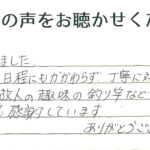 の声をお聴かせくだ
ました。
日程にもかかわらず 丁寧に
故人の趣味の釣り竿など
も感謝しています
ありがとうござ